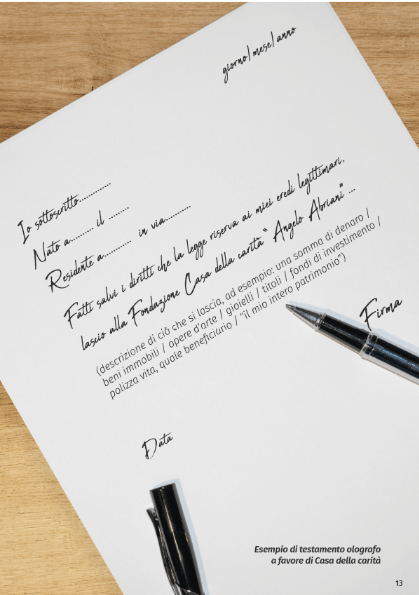 giorno/mese/anno
Io sottoscritto............
Nato a......... il ........
Residente a.......... in via.........
Fatti salvi i diritti che la legge riserva ai miei eredi legittimari,
lascio alla Fondazione Casa della carità “Angelo Abriani” ...
(descrizione di ciò che si lascia, ad esempio: una somma di denaro /
beni immobili / opere d'arte / gioielli / titoli / fondi di investimento /
polizza vita, quale beneficiario / “il mio intero patrimonio”)
Firma
Data
Esempio di testamento olografo
a favore di Casa della carità
13